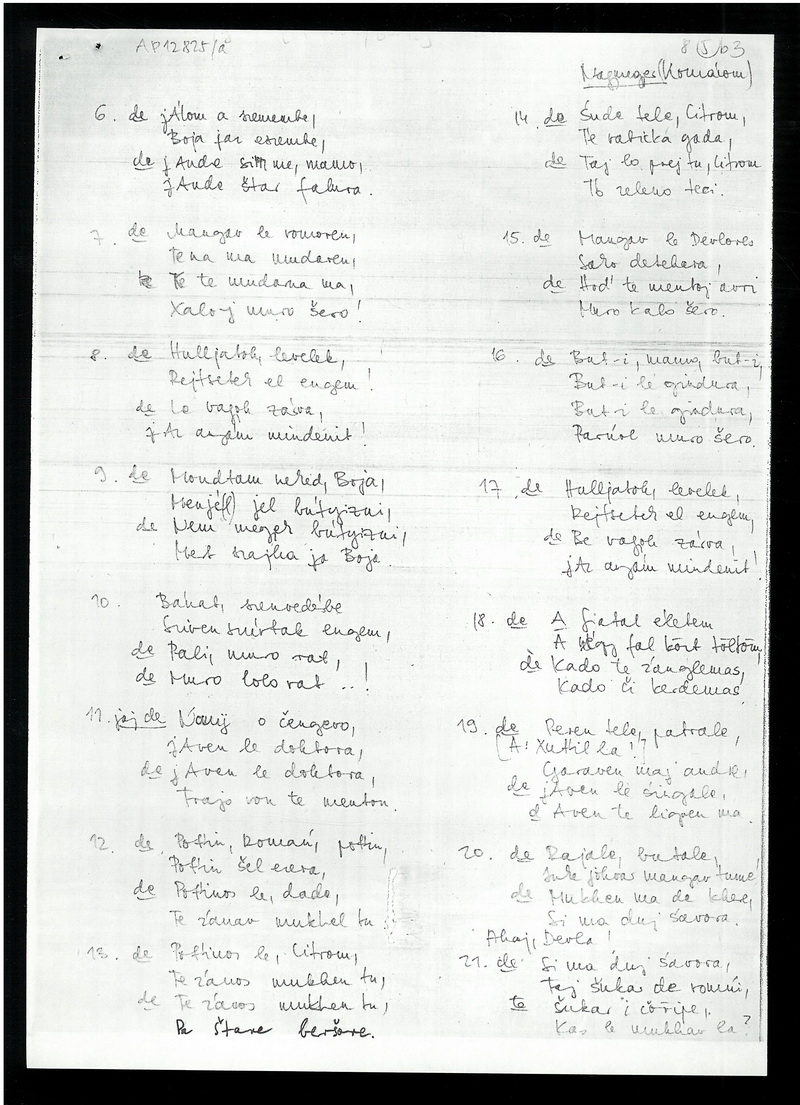 AP12825/a
8 (5) 63
(Komárom)
6. de jálom a szemembe,
Boja jaz eszembe,
de jAnde sím me, mamo,
jAnde štar falura.
7. de Mangav le romoren,
Te na ma mudaren,
te Te te mudarna ma,
Xalo-j muro šero!
8. de Hulljatok, levelek,
Rejtsetek el engem!
de Le vagok zárva,
jAz anyám mindenit!
9. de Mondtam neked, Boja,
Menjé(l) jel bútyizni,
de Nem megyek bútyizni,
Mert szajha ja Boja.
10. Bánat, szenvedésbe
Szíven szúrtak engem,
de Pali, muro rat,
de Muro lolo rat ..!
11. jaj de Nanij o čengevo,
jAven le doktora,
de jAven le doktora,
Trajo von te menton.
12. de Poftin, Romani, poftin,
Poftin šel ezera,
de Poftinos le, dado,
Te zánav mukhel tu
13. de Poftinos le, Citrom,
Te zános mukhen tu,
de Te zános mukhen tu,
Pa štare beršore.
14. de Śude tele, Citrom,
Te raticka gada,
de Taj lo prej tu, Citrom
Tb zeleno teci.
15. de Mangav le Devlores
Sako detehara,
de Hod' te mentoj avri
Muro kalo šero.
16. de But-i, mamo, but-i,
But-i le gindura,
But-i le gindura,
Parúol muro šero.
17. de Hulljatok, levelek,
Rejtsetek el engem,
de Be vagok zárva,
jAz anyám mindenit!
18. de A fiatal életem
A négy fal közt töltöm,
de Kado te zanglemas,
Kado či kerdemas.
19. de Peren tele, patrale,
[A: Xuttil la!]
Garaven maj andré,
de jAven le šingale,
d Aven te ligren ma.
20. de Rajale, butale,
jokhar mangav tume
de Mukhen ma de khere,
Si ma duj šavora.
Ahaj, Devla!
21. de Si ma duj šavora,
Taj šukar de romni,
te šukar i čořipe,
Kas le mukhav la?